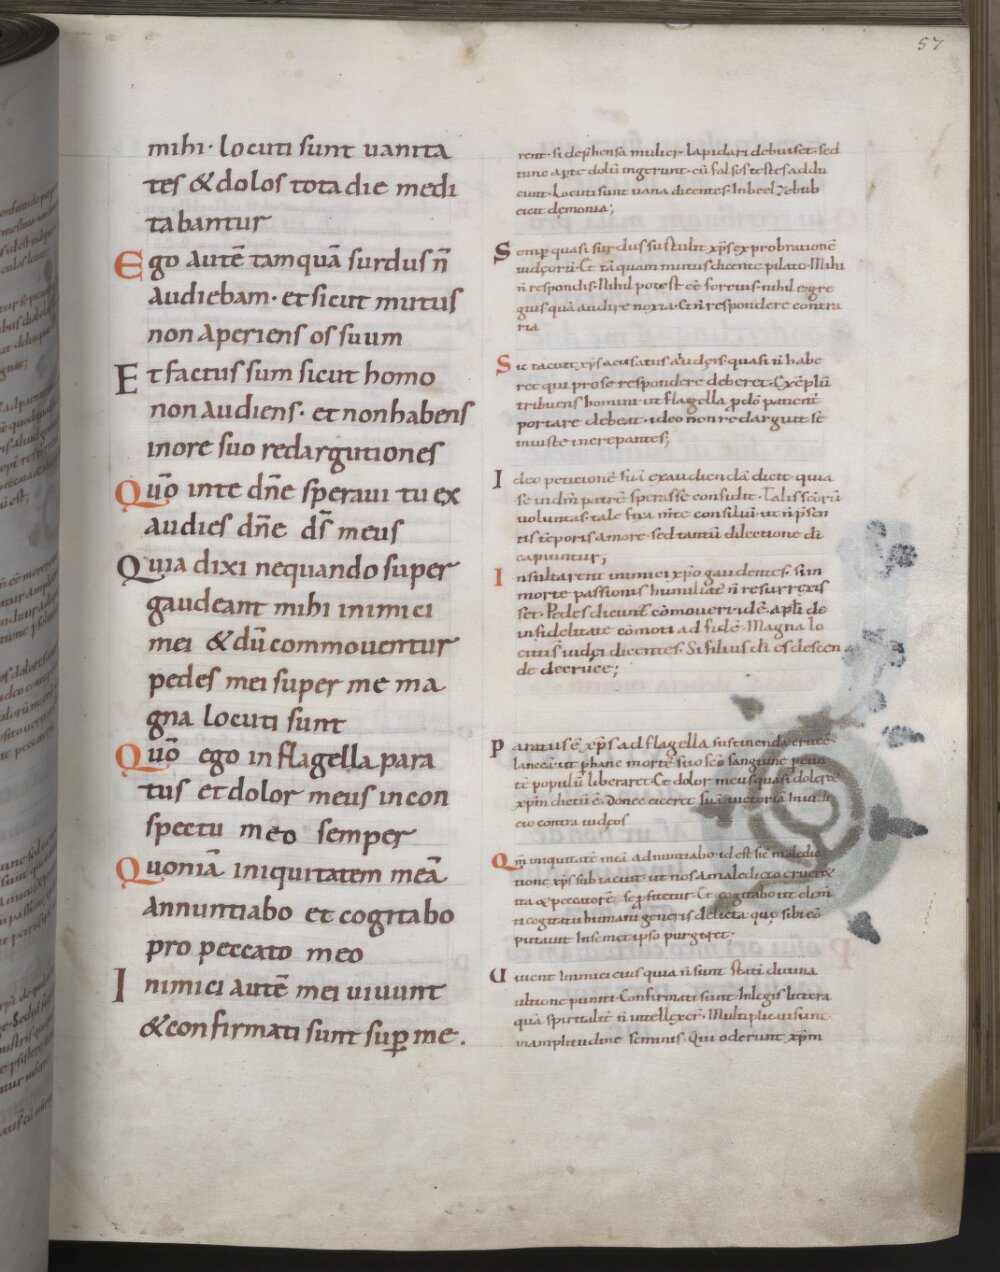 57
mihi· locuti sunt uanita
tes & dolos tota die medi
tabantur
Ego autē tamquā surdus n̄
audiebam· et sicut mutus
non aperiens os suum
Et factus sum sicut homo
non audiens· et non habens
in ore suo redargutiones
Quō in te dn̄e speraui tu ex
audies dn̄e ds̄ meus
Quia dixi nequando super
gaudeant mihi inimici
mei & dū commouentur
pedes mei super me ma
gna locuti sunt
Quō ego in flagella para
tus et dolor meus in con
spectu meo semper
Quoniā iniquitatem meā
annuntiabo et cogitabo
pro peccato meo
Inimici autē mei uiuunt
& confirmati sunt sup̱ me.
rent· si dep̄hensa mulier lapidari debuisset· sed
tunc aperte dolū ingerunt· cū falsos testes addu
cunt· Locuti sunt uana dicentes· In beelzebub
eicit demonia;
Semp̱ quasi surdus sustulit xp̄s exprobrationē
iudeorū· Et tāquam mutus dicente pilato· Mihi
n̄ respondis· Nihil potest eē fortius· nihil egre
gius quā audire noxia· & n̄ respondere contra
ria
Sic tacuit xp̄s accusatus a iudeis· quasi n̄ habe
ret qui pro se respondere deberet· Exēplū
tribuens homini· ut flagella p̱ dō patient̄
portare debeat· ideo non redarguit se
iniuste increpantes;
Ideo petitionē suā exaudiendā dicit· quia
se in dm̄ patrē sperasse confidit· Talis scōrū
uoluntas· tale fixa m̄te consiliū· ut n̄ p̄sen
tis tēporis amore· sed tantū dilectione di
capiuntur;
Insultarent inimici xp̄o gaudentes· si in
morte passionis humiliatē n̄ resurrexis
set· Pedes dicunt̄ cōmoueri· idē· apl̄i de
infidelitate cōmoti ad fidē· Magna lo
cutis iudei dicentes· Si filius di es descen
de de cruce;
Paratus ē xp̄s ad flagella sustinenda cruce
lanceā· ut p̱ hanc mortē suo scō sanguine peun
tē populū liberaret· Et dolor meus quasi dolore
xp̄m dictū ē· donec eiceret suā uictoriā in iudi
cio contra iudeos
Qm̄ iniquitatē meā adnuntiabo· id est sic maledic
tione xp̄s subiacuit· ut nos a maledicto erueret
ita & peccatorē se p̱fitetur· Et cogitabo ut clem̄
ti cogitatu humani generis delicta que sibi cō
putauit In semet ipso purgaret·
Uiuent inimici eius quia n̄ sunt stati diuina
ultione puniti· Confirmati sunt· In legis littera
quā spiritalit̄ n̄ intellexer̄· Multiplicati sunt·
in amplitudine seminis· Qui oderunt xp̄m